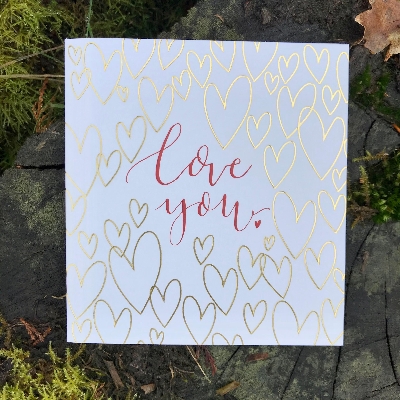 love
you.